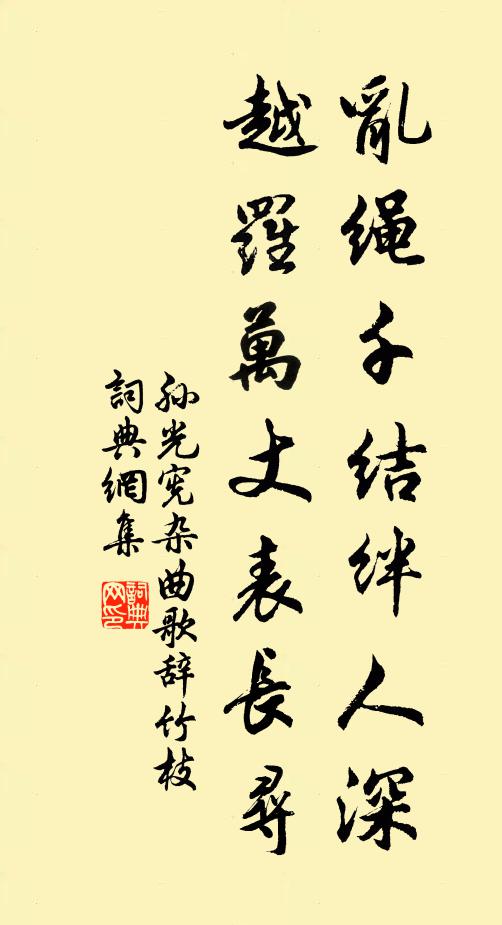 亂繩千结絆人深
越羅萬丈表長尋
孙光宪杂曲歌辞竹枝
詞典網集
詞典
网印